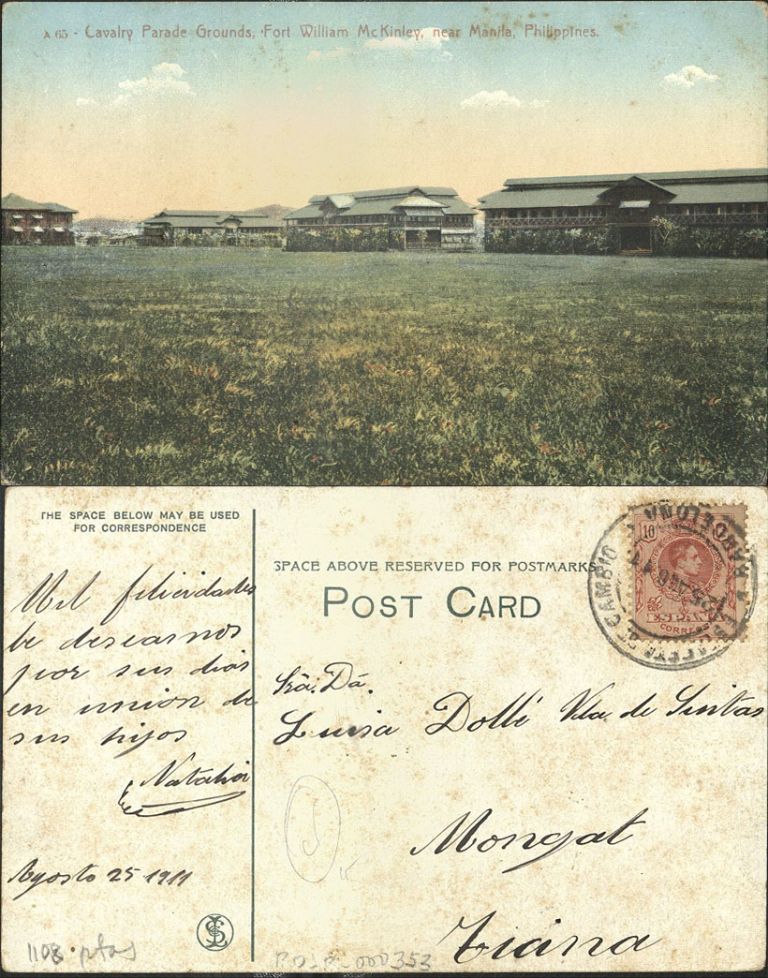 A 65 - Cavalry Parade Grounds, Fort William McKinley, near Manila, Philippines.
THE SPACE BELOW MAY BE USED
FOR CORRESPONDENCE
SPACE ABOVE RESERVED FOR POSTMARKS
POST CARD
10
ESPAÑA
CORREOS
BARCELONA
CAMBIO
Mil felicidades
le desearnos
por sus dias
en union de
sus hijos
Natalia
Agosto 25 1911
Sra. Da.
Luisa Dollí Vda. de Sintas
Mongat
Tiana
1108 ptas